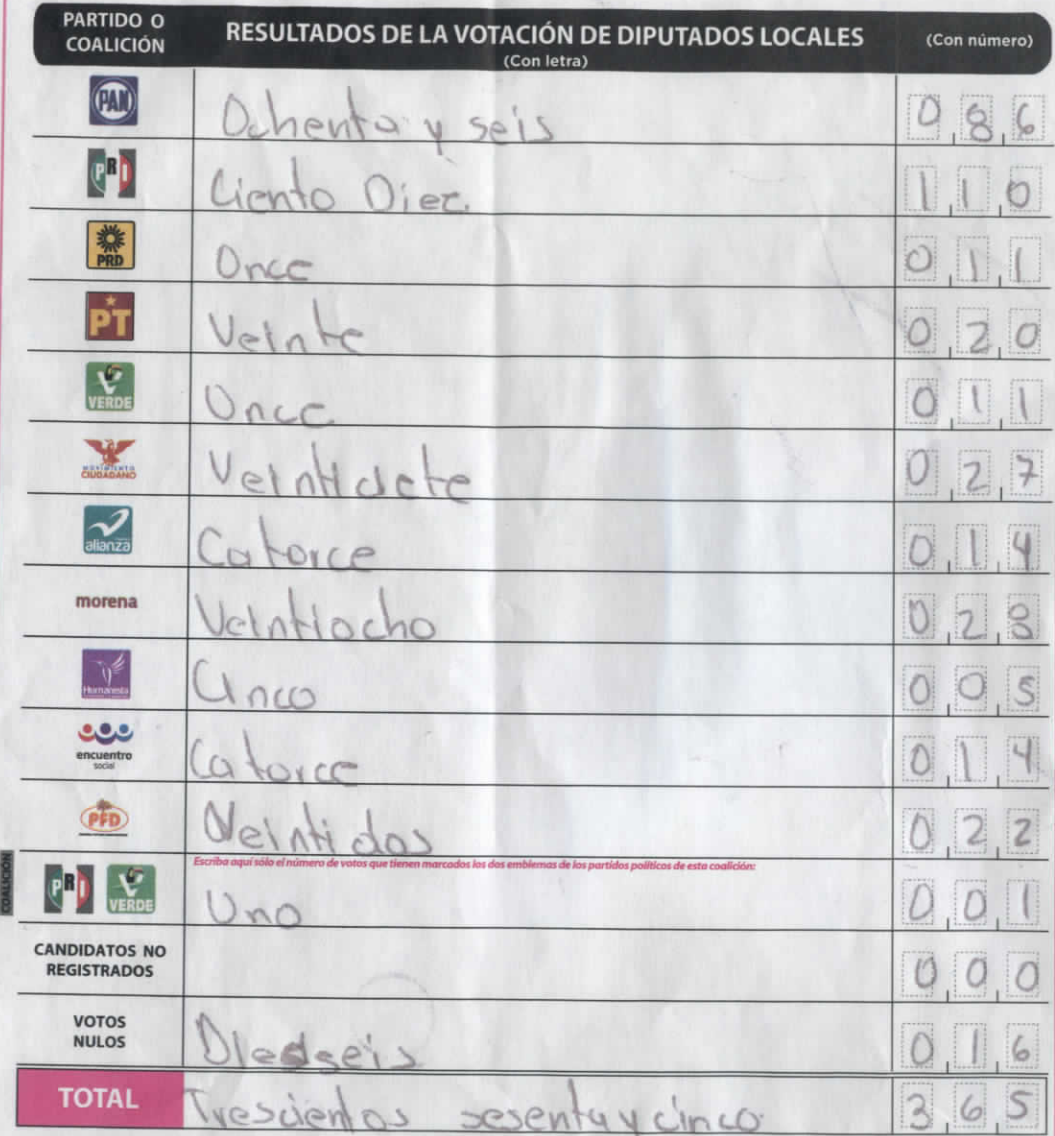 PARTIDO O COALICIÓN RESULTADOS DE LA VOTACIÓN DE DIPUTADOS LOCALES (Con letra) (Con número)
PAN Ochenta y seis 086
PRI Ciento Diez. 110
PRD Once 011
PT Veinte 020
VERDE Once 011
MOVIMIENTO CIUDADANO Veintisiete 027
alianza Catorce 014
morena Veintiocho 028
Humanista Cinco 005
encuentro social Catorce 014
PFD Veintidos 022
Escriba aquí sólo el número de votos que tienen marcados los dos emblemas de los partidos políticos de esta coalición:
COALICIÓN PRI VERDE Uno 001
CANDIDATOS NO REGISTRADOS 000
VOTOS NULOS Diedseis 016
TOTAL Trescientos sesenta y cinco 365